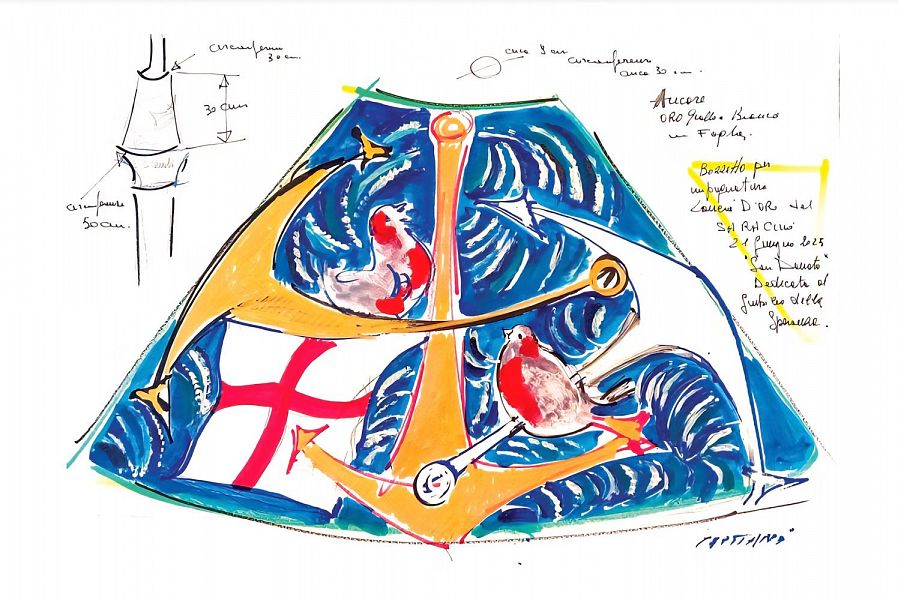 circonferenza
30 cm.
30 cm
circonferenza
50 cm.
circa 9 cm
circonferenza
circa 30 cm.
Ancore
ORO Giallo e Bianco
in Foglia.
Bozzetto per
impugnatura
Lancia D'ORO del
SARACINO
21 Giugno 2025
"San Donato"
Dedicata al
Giubileo della
Speranza.